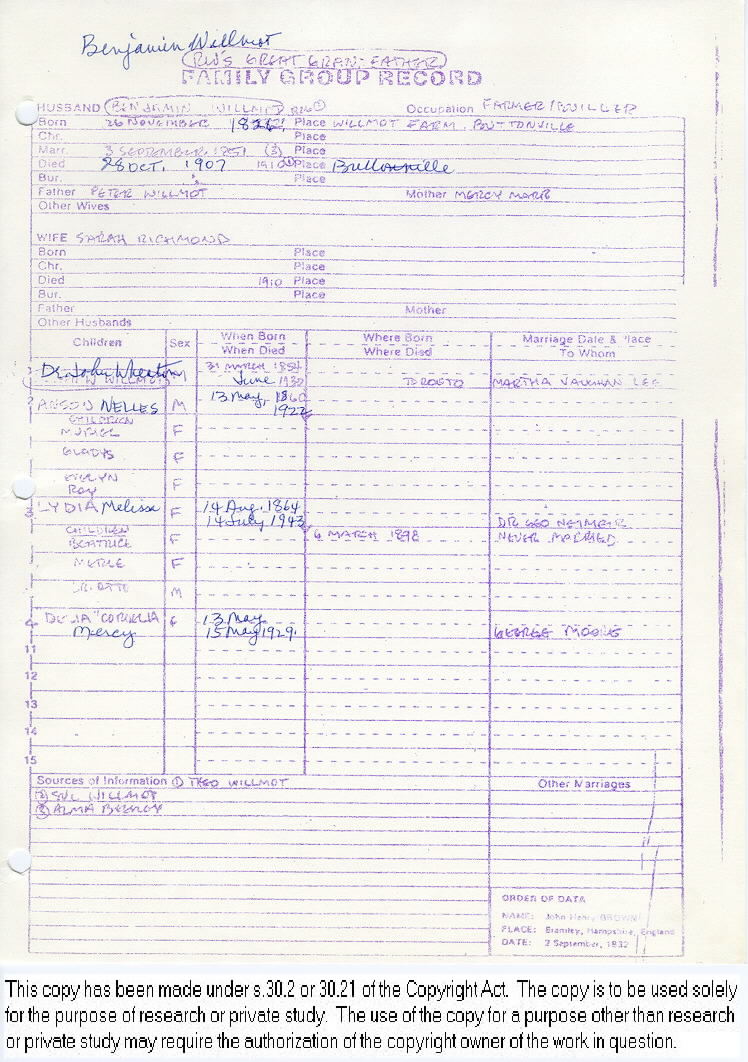 Benjamin Willmot
RW'S GREAT GRAN. FATHER
FAMILY GROUP RECORD
HUSBAND BENJAMIN WILLMOT Occupation FARMER/MILLER
Born 26 NOVEMBER Place WILLMOT FARM. BUTTONVILLE
Chr. Place
Marr. 3 SEPTEMBER. 1851 (3) Place
Died 28 OCT. 1907 1910 Place Buttonville
Bur. Place
Father PETER WILLMOT Mother MERCY MARR
Other Wives
WIFE SARAH RICHMOND
Born Place
Chr. Place
Died 1910 Place
Bur. Place
Father Mother
Other Husbands
Children Sex When Born Where Born Marriage Date & Place
When Died Where Died To Whom
Dr. John Wheaton M 31 MARCH
WILLMOT June 1930 TORONTO MARTHA VAUGHAN LEE
2 ANSON NELLES M 13 May, 1860
1922
CHILDREN
MURIEL F
GLADYS F
EVELYN F
ROY
3 LYDIA Melissa F 14 Aug. 1864
14 July 1943 DR GEO
CHILDREN 6 MARCH 1898 NEVER MARRIED
BEATRICE F
MERLE F
DR. OTTO M
4 DELIA "CORNELIA 13 May
Mercy 15 May 1929. GEORGE MOORE
11
12
13
14
15
Sources of Information ① THEO WILLMOT Other Marriages
② WILLMOT
③ ALMA
ORDER OF DATA
NAME: John Henry BROWN
PLACE: Bramley, Hampshire, England
DATE: 2 September, 1832
This copy has been made under s.30.2 or 30.21 of the Copyright Act. The copy is to be used solely
for the purpose of research or private study. The use of the copy for a purpose other than research
or private study may require the authorization of the copyright owner of the work in question.